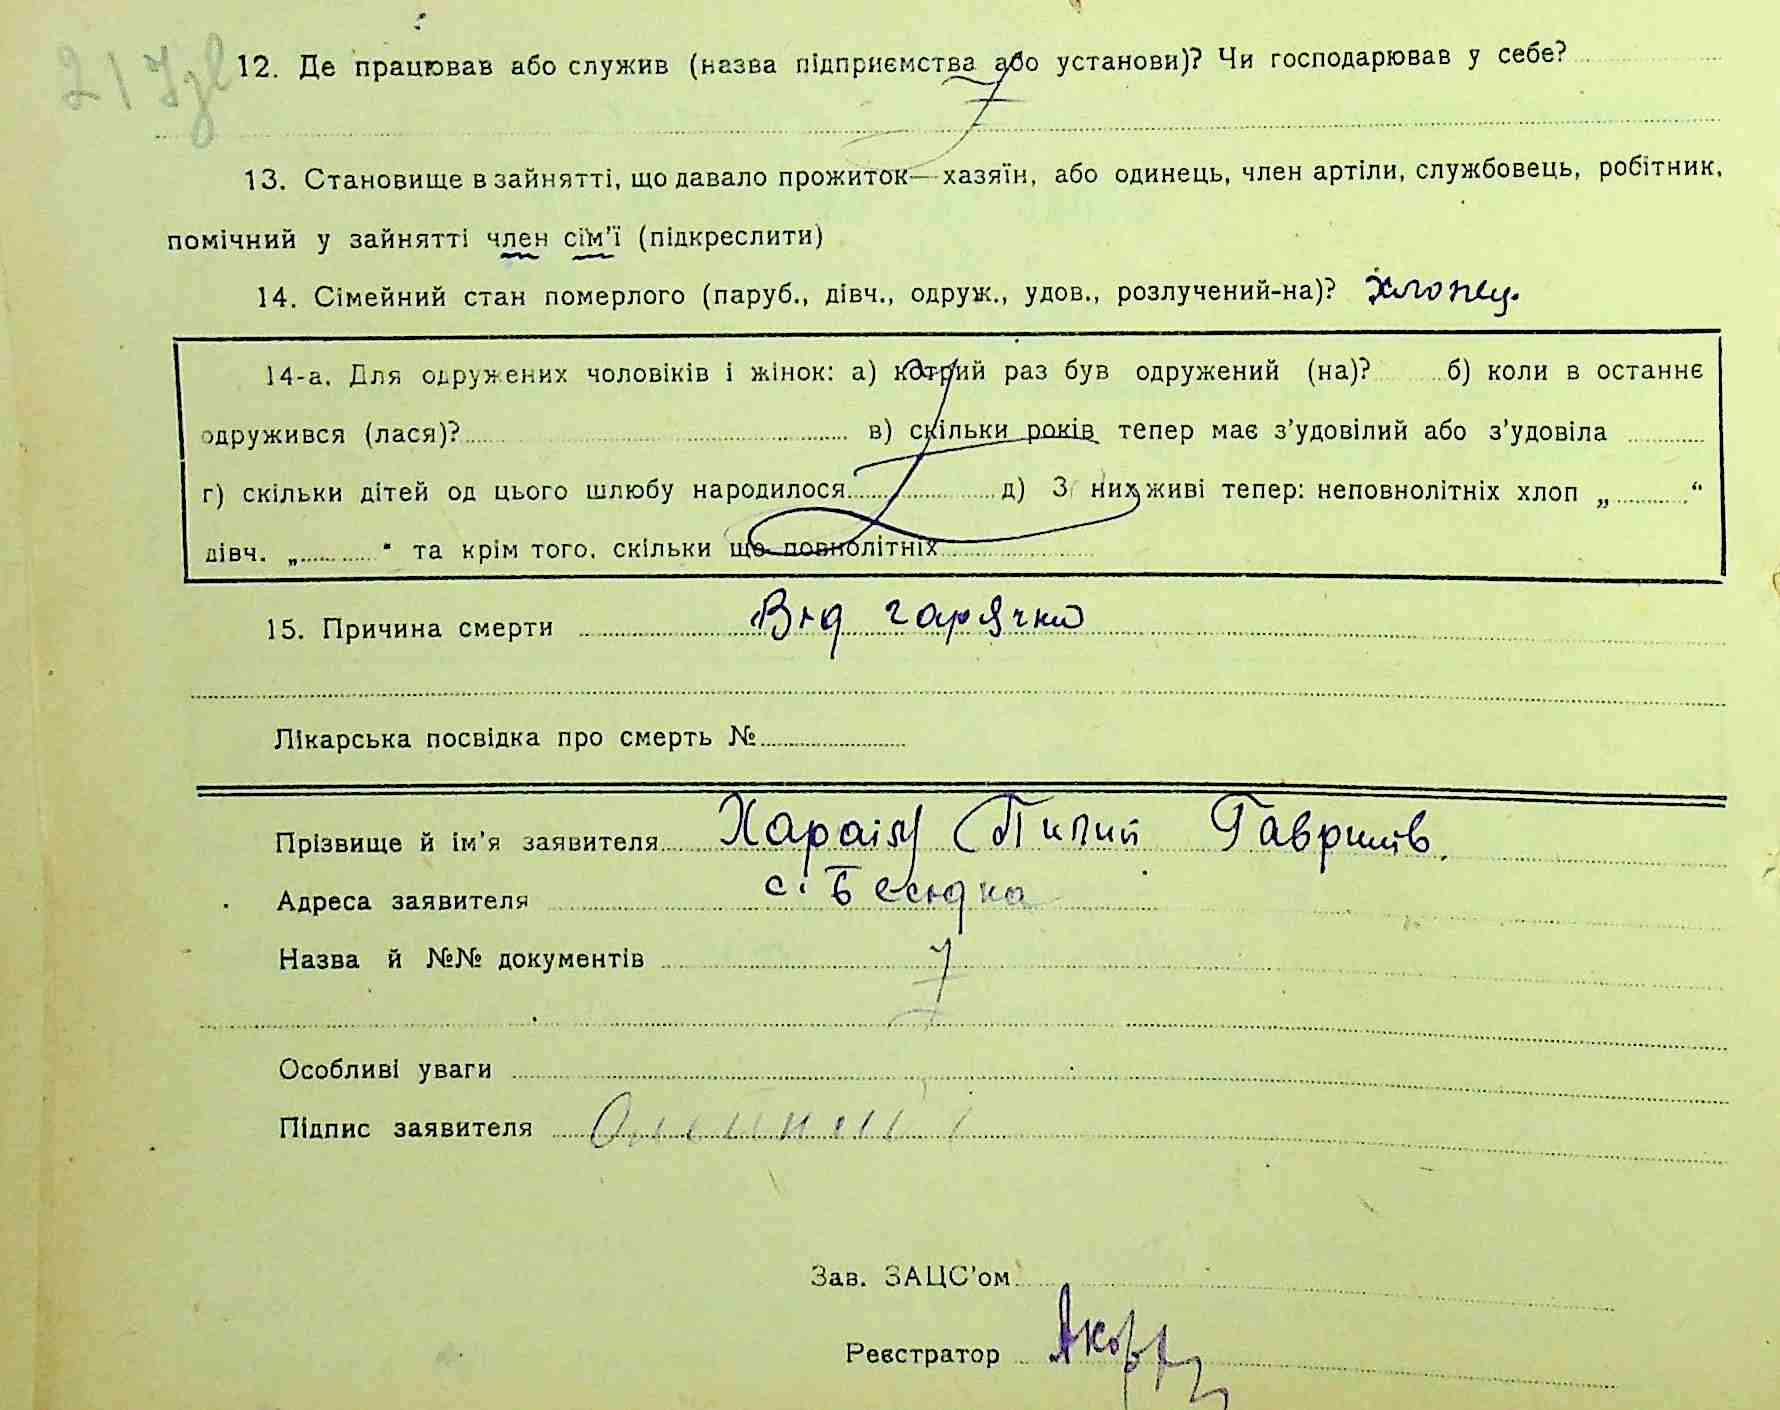 12. Де працював або служив (назва підприємства або установи)? Чи господарював у себе?
13. Становище в зайнятті, що давало прожиток—хазяїн, або одинець, член артіли, службовець, робітник,
помічний у зайнятті член сім'ї (підкреслити)
14. Сімейний стан померлого (паруб., дівч., одруж., удов., розлучений-на)? хлопец.
14-а. Для одружених чоловіків і жінок: а) котрий раз був одружений (на)? б) коли в останнє
одружився (лася)? в) скільки років тепер має з'удовілий або з'удовіла
г) скільки дітей од цього шлюбу народилося д) З них живі тепер: неповнолітніх хлоп „ “
дівч. „ “ та крім того, скільки ще повнолітніх
15. Причина смерти Від гарячки
Лікарська посвідка про смерть №
Прізвище й ім'я заявителя Пилип Гаврилів.
Адреса заявителя с.
Назва й №№ документів
Особливі уваги
Підпис заявителя
Зав. ЗАЦС'ом
Реєстратор